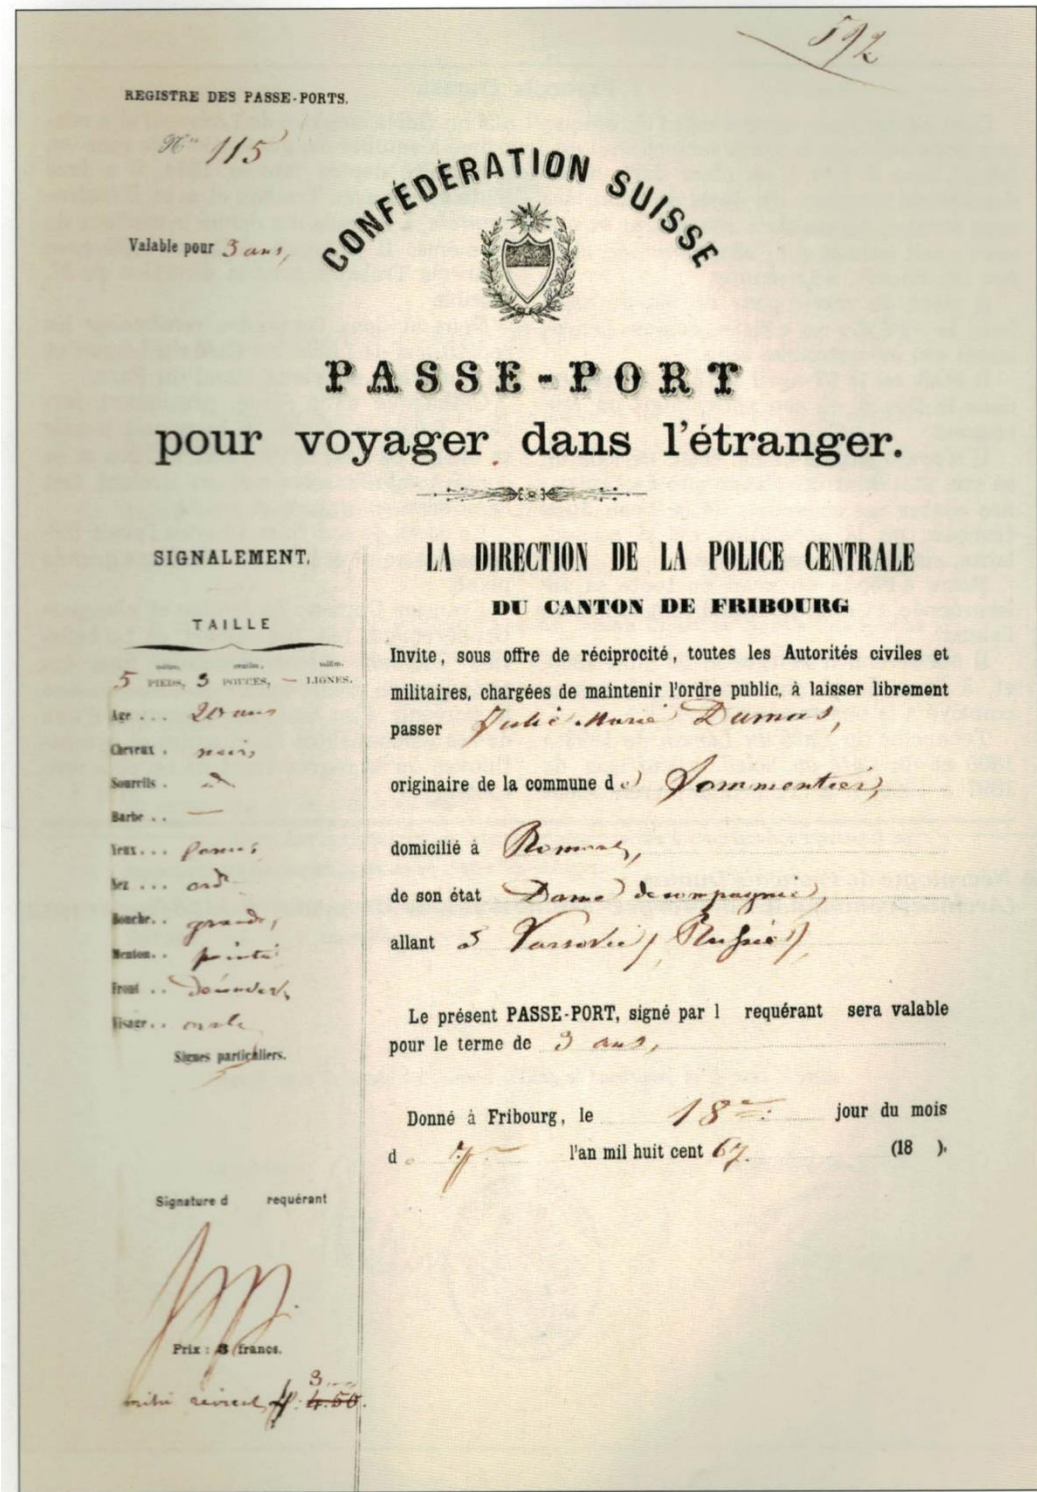 592
REGISTRE DES PASSE-PORTS.
No 115
CONFÉDÉRATION SUISSE
Valable pour 3 ans,
PASSE-PORT
pour voyager dans l'étranger.
SIGNALEMENT.
TAILLE
5 PIEDS, 3 POUCES, — LIGNES.
Age ... 20 ans
Cheveux . noirs
Sourcils .
Barbe .. —
Yeux ...
Nez ... ord
Bouche .. grande,
Menton .. pointu
Front .. découvert,
Visage .. ovale
Signes particuliers.
Signature d requérant
Prix : 3 francs.
3
f. 4.50.
LA DIRECTION DE LA POLICE CENTRALE
DU CANTON DE FRIBOURG
Invite, sous offre de réciprocité, toutes les Autorités civiles et
militaires, chargées de maintenir l'ordre public, à laisser librement
passer Julie Marie Dumas,
originaire de la commune de Sommentier,
domicilié à Romont,
de son état Dame de compagnie,
allant à Varsovie (Russie),
Le présent PASSE-PORT, signé par l requérant sera valable
pour le terme de 3 ans,
Donné à Fribourg, le 18 jour du mois
d l'an mil huit cent 67. (18 ).